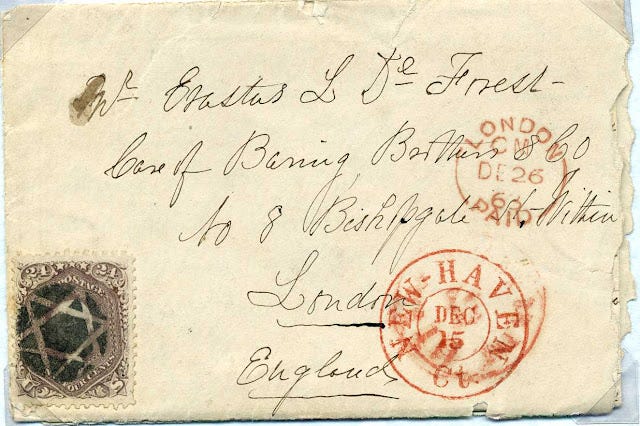 Mr Erastus L De Forest
Care of Baring Brothers & Co
No 8 Bishpgate St. Within
London
England
LONDON
CM
DE 26
PAID
NEW-HAVEN
DEC
15
Ct.
24 24
POSTAGE
U S